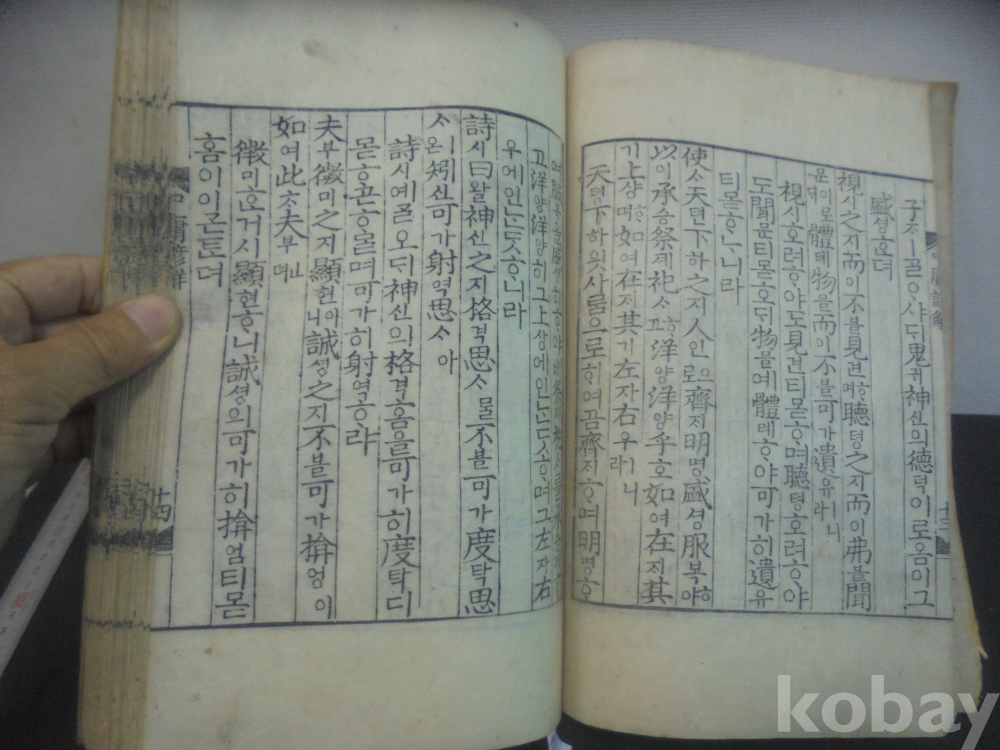 子ᄌᆞㅣᄀᆞᆯᄋᆞ샤ᄃᆡ鬼귀神신의德덕이로옴이그
盛셩ᄒᆞ뎌
視시之지而이不블見견ᄒᆞ며聽텽之지而이弗블聞
문이로ᄃᆡ體톄物믈而이不블可가遺유ㅣ니라
視시호려ᄒᆞ야도見견티몯ᄒᆞ며聽텽호려ᄒᆞ야
도聞문티몯호ᄃᆡ物믈에體톄ᄒᆞ야可가히遺유
티몯ᄒᆞᄂᆞ니라
使ᄉᆞ天텬下하之지人인으로齊ᄌᆡ明명盛셩服복ᄒᆞ야
以이承승祭졔祀ᄉᆞᄒᆞ고洋양洋양乎호如여在ᄌᆡ其
기上샹ᄒᆞ며如여在ᄌᆡ其기左자右우ㅣ니라
天텬下하읫사ᄅᆞᆷ으로ᄒᆞ여곰齊ᄌᆡᄒᆞ며明명ᄒᆞ
고洋양洋양히그上샹에인ᄂᆞᆫᄃᆞᆺᄒᆞ며그左자右
우에인ᄂᆞᆫᄃᆞᆺᄒᆞ니라
詩시曰왈神신之지格격思ᄉᆞ믈不블可가度탁思
ᄉᆞ온矧신可가射역思ᄉᆞ아
詩시예ᄀᆞᆯ오ᄃᆡ神신의格격홈을可가히度탁디
몯ᄒᆞ곤ᄒᆞ믈며可가히射역ᄒᆞ랴
夫부微미之지顯현이니誠셩之지不블可가揜엄이
如여此ᄎᆞ夫부뎌
微미호거시顯현ᄒᆞ니誠셩의可가히揜엄티몯
홈이이ᄀᆞᆮᄐᆞᆫ뎌
中庸諺解
十四
kobay